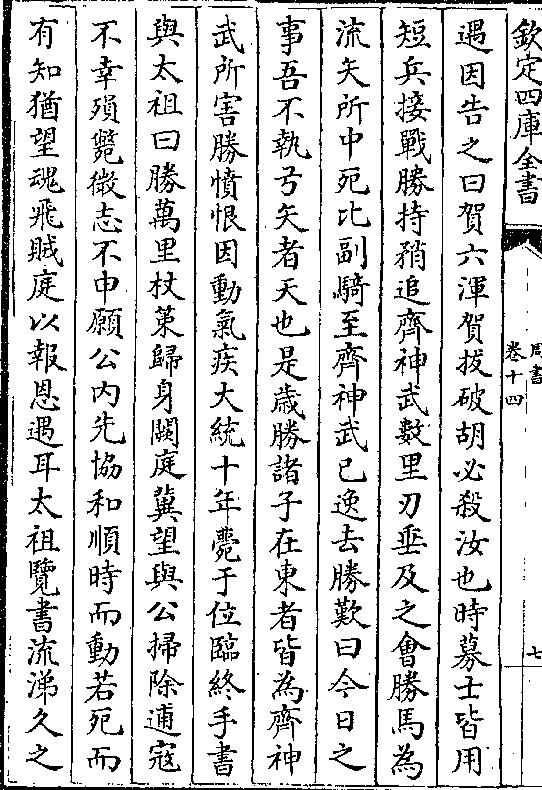 欽定四庫全書
周書
卷十四
七
遇因告之曰賀六渾賀拔破胡必殺汝也時募士皆用
短兵接戰勝持矟追齊神武數里刃垂及之會勝馬為
流矢所中死比副騎至齊神武已逸去勝歎曰今日之
事吾不執弓矢者天也是歲勝諸子在東者皆為齊神
武所害勝憤恨因動氣疾大統十年薨于位臨終手書
與太祖曰勝萬里杖策歸身闕庭冀望與公掃除逋寇
不幸殞斃微志不申願公內先協和順時而動若死而
有知猶望魂飛賊庭以報恩遇耳太祖覽書流涕久之